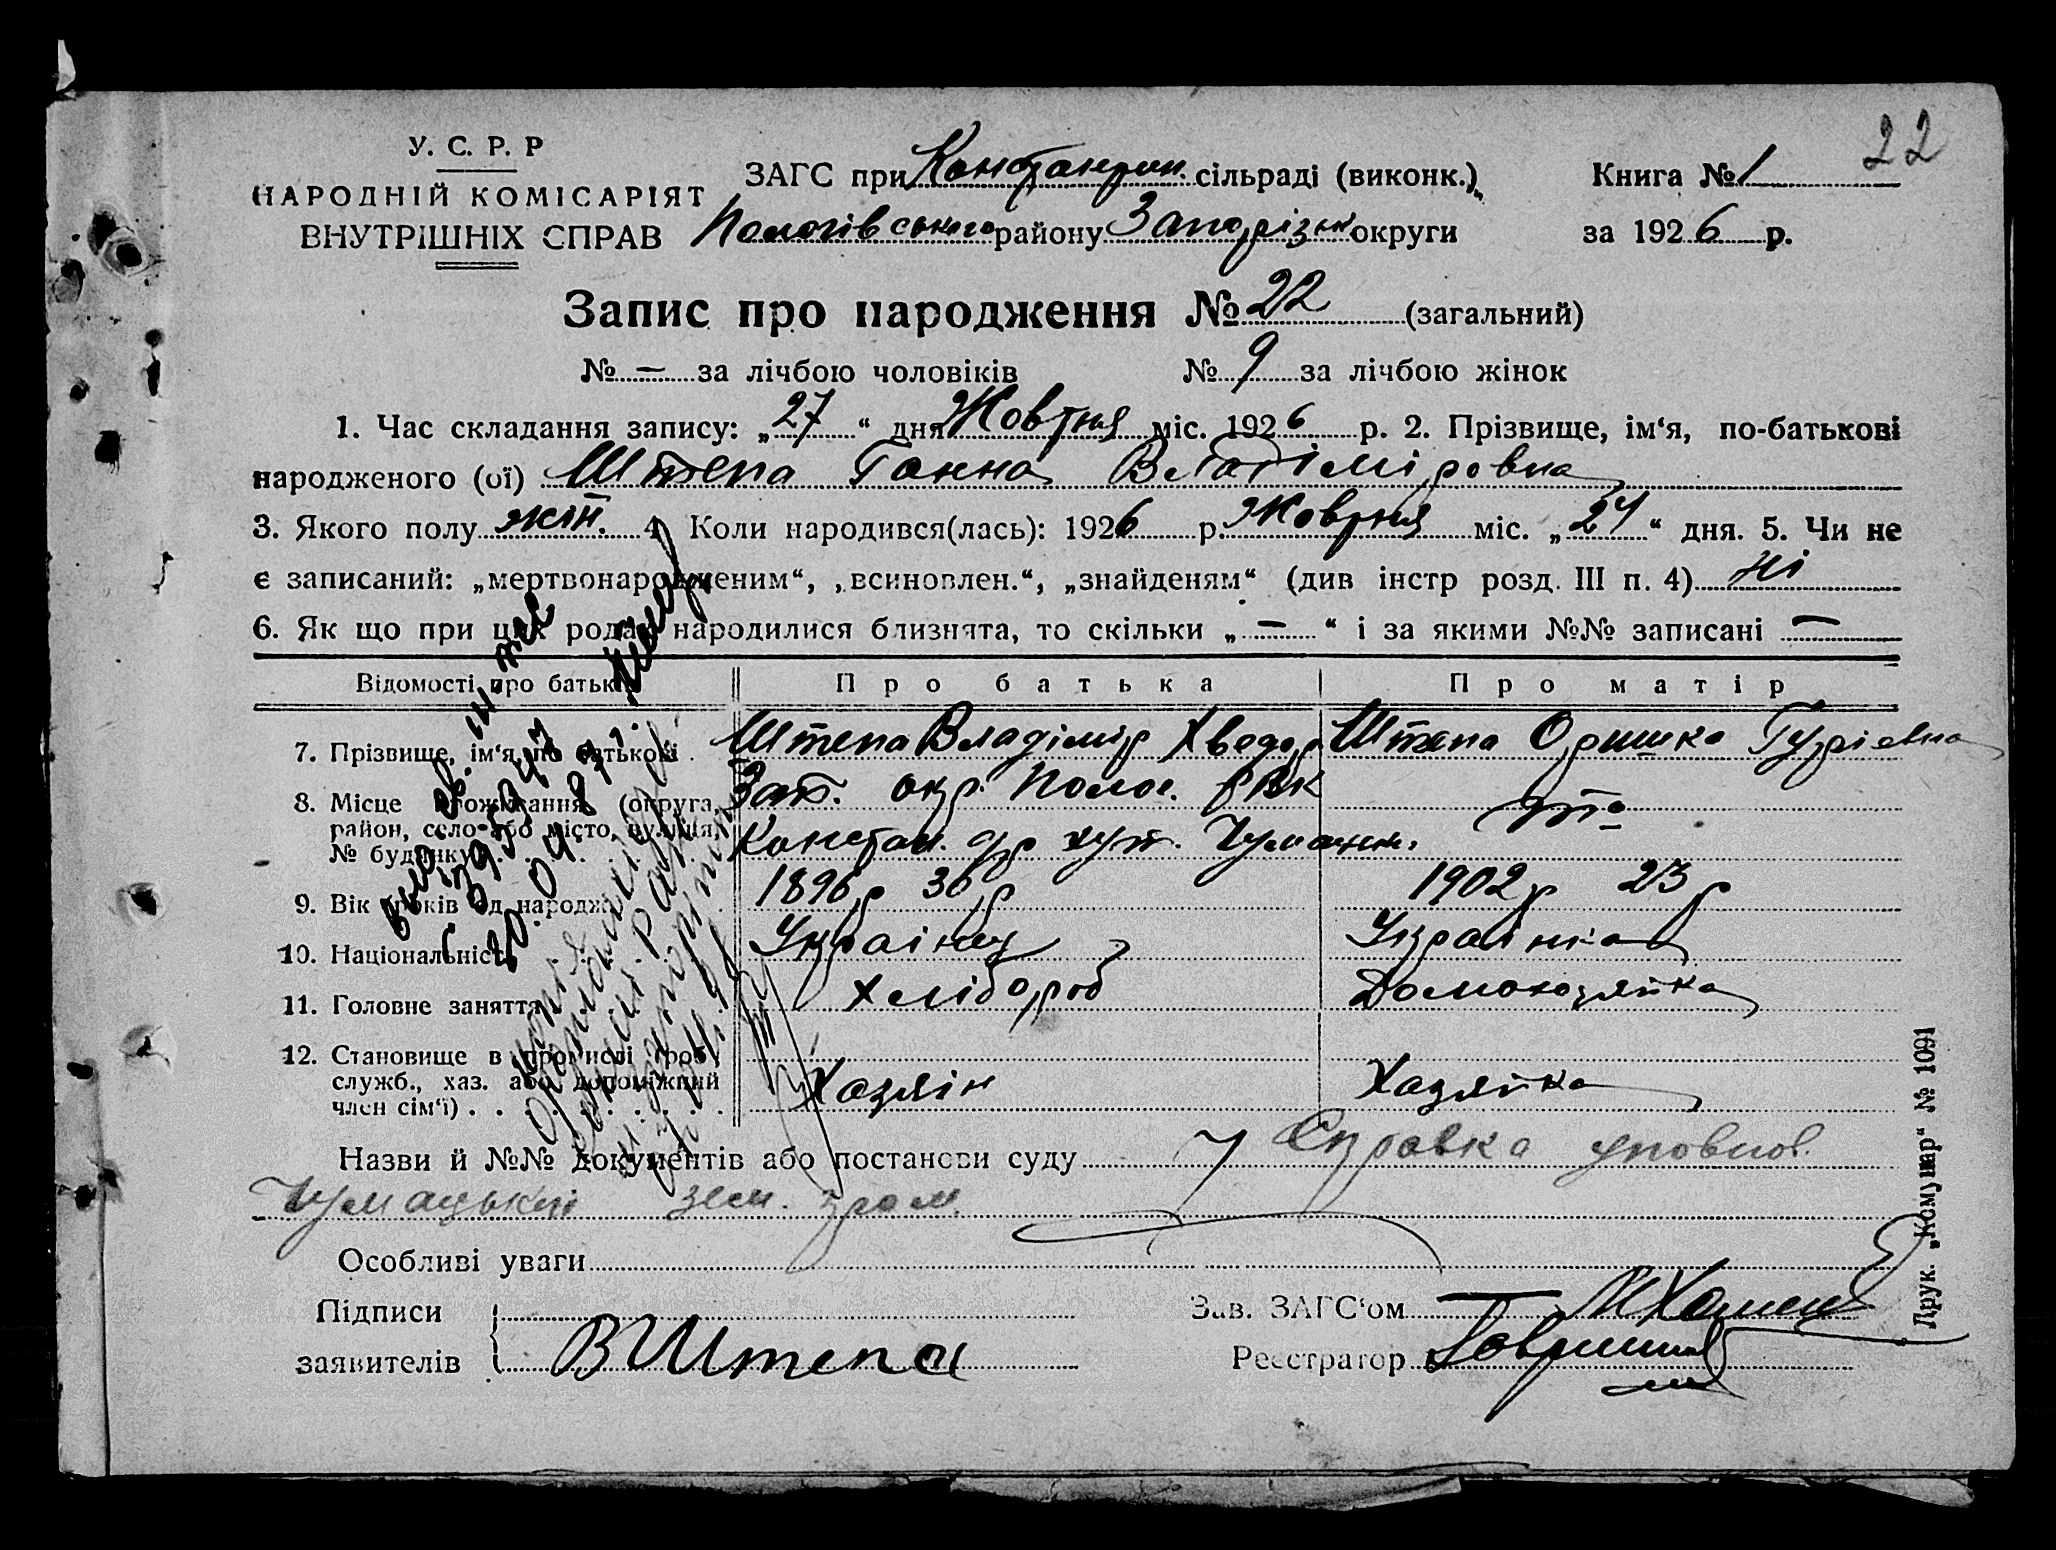 22
У. С. Р. Р
НАРОДНІЙ КОМІСАРІЯТ
ВНУТРІШНІХ СПРАВ
ЗАГС при Константин. сільраді (виконк.)
Пологівського району Запорізьк округи
Книга № 1
за 1926 р.
Запис про народження № 22 (загальний)
№ — за лічбою чоловіків № 9 за лічбою жінок
1. Час складання запису: „27“ дня Жовтня міс. 1926 р. 2. Прізвище, ім‘я, по-батькові
народженого (ої) Штепа Ганна Владіміровна
3. Якого полу жін. 4. Коли народився(лась): 1926 р. Жовтня міс. „24“ дня. 5. Чи не
є записаний: „мертвонародженим“, „всиновлен.“, „знайденям“ (див інстр розд. III п. 4) ні
6. Як що при цих родах народилися близнята, то скільки „—“ і за якими №№ записані —
Відомості про батьків Про батька Про матір
7. Прізвище, ім‘я, по батькові Штепа Владімір Хведор Штепа Оришка Гурієвна
8. Місце прожування (округа, Зап. окр. Полог. рвк
район, село або місто, вулиця, дто
№ будинку) Констан. с/р хут. Чумацьк.
9. Вік (років од народж.) 1896 р 36 р 1902 р 23 р
10. Національність Українец Українка
11. Головне заняття Хлібороб Домохозяйка
12. Становище в промислі (роб.,
служб., хаз. або допоміжний Хазяїн Хазяйка
член сім‘ї)
Назви й №№ документів або постанови суду Справка уповнов.
Чумацький зем. гром.
Особливі уваги
Підписи Зав. ЗАГС‘ом
заявителів ВШтепа Реєстратор
Друк. „Комунар“ № 1091